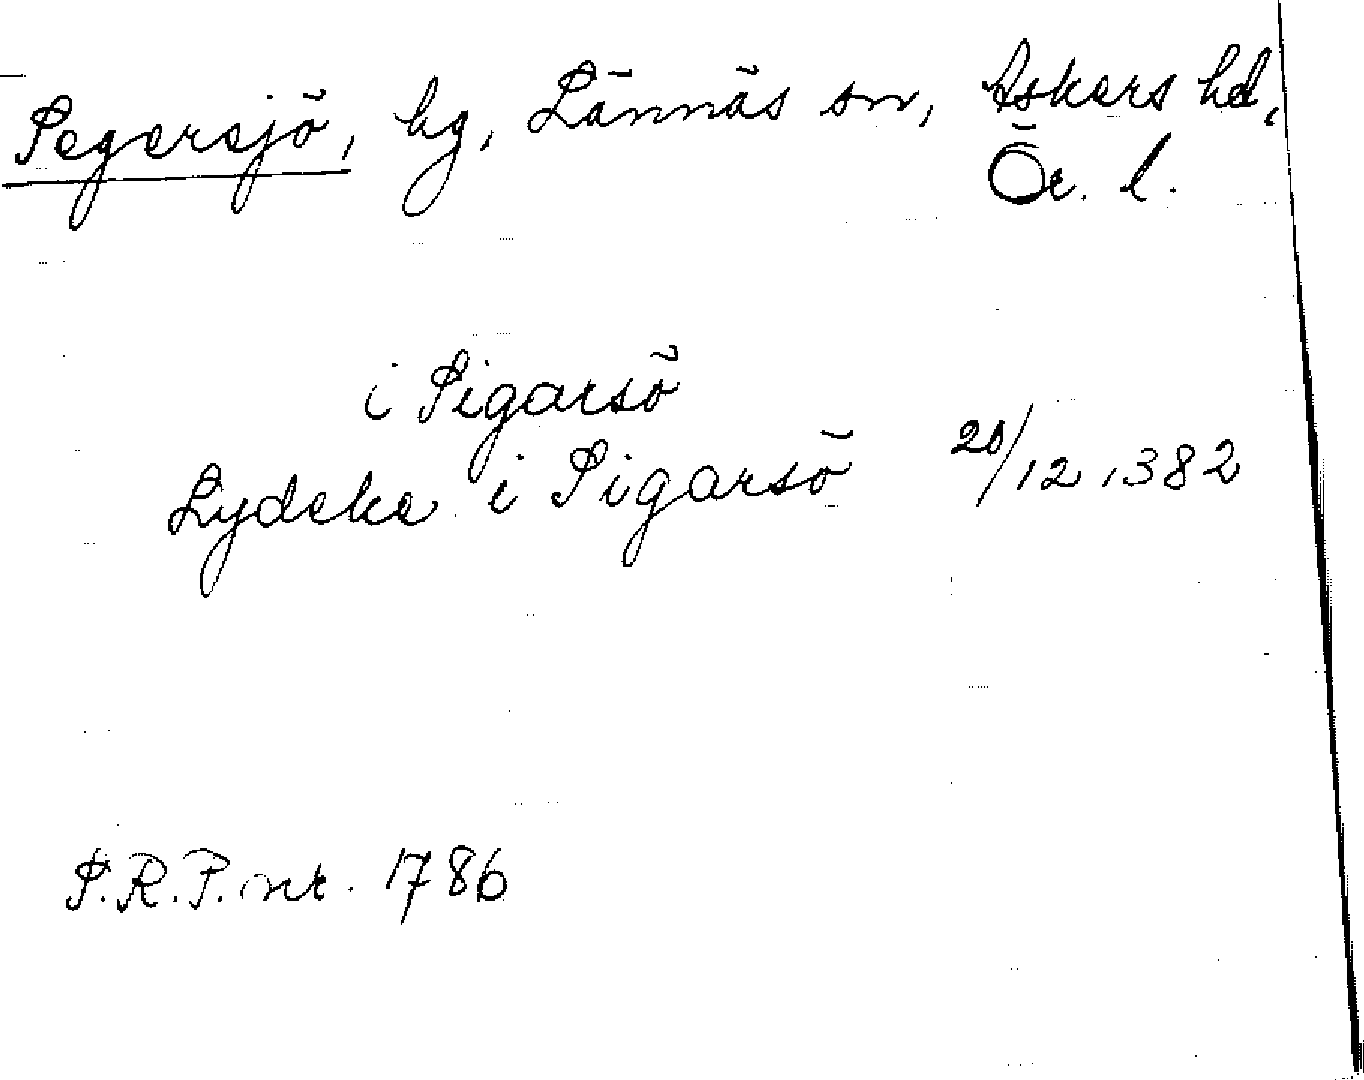 Segersjö, hg, Lännäs sn, Askers hd,
Ör. l.
i Sigarsö
Lydeke i Sigarsö 20/12 1382
S.R.P. nr. 1786